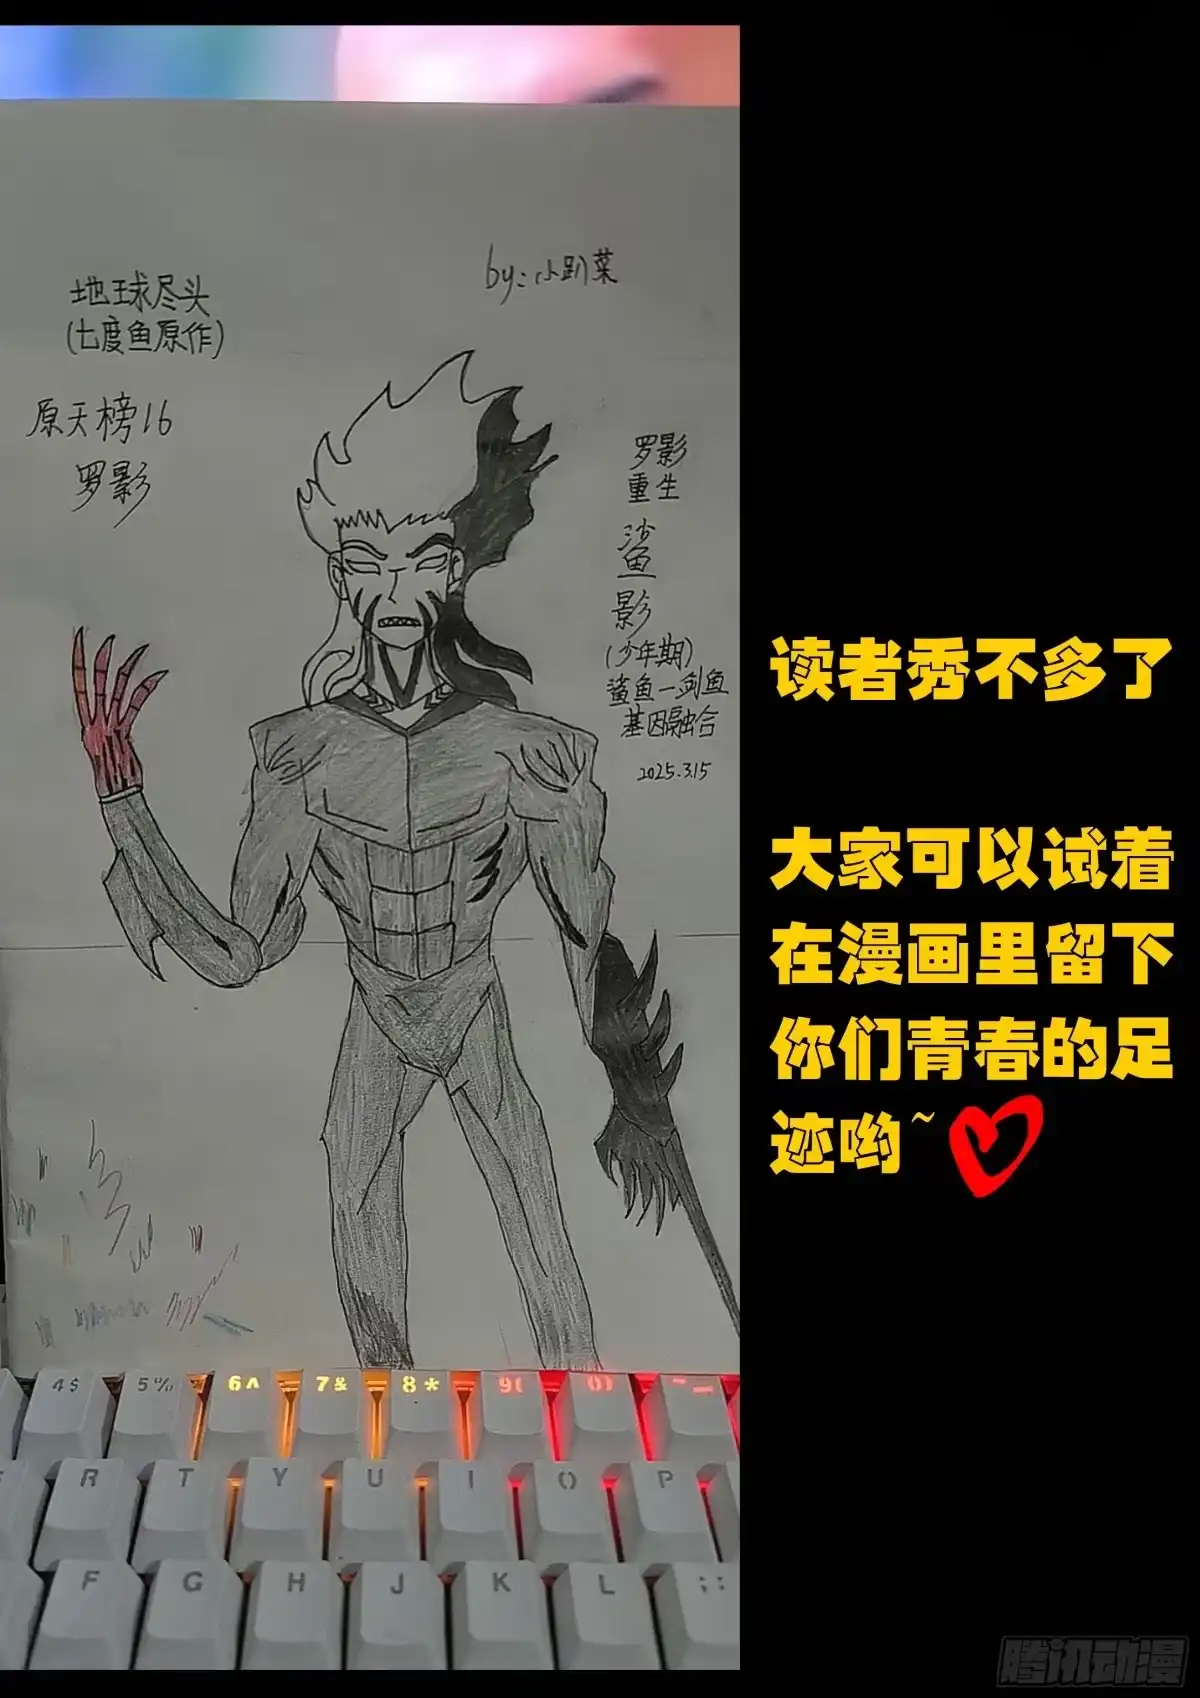 地球尽头
(七度鱼原作)
by:小趴菜
原天榜16
罗影
罗影
重生
鲨
影
(少年期)
鲨鱼-剑鱼
基因融合
2025.3.15
读者秀不多了
大家可以试着
在漫画里留下
你们青春的足
迹哟~
4$ 5% 6^ 7& 8* 9( 0) -_
R T Y U I O P
F G H J K L ;:
腾讯动漫